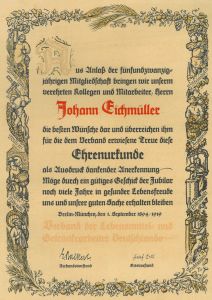 Aus Anlaß der fünfundzwanzig-
jährigen Mitgliedschaft bringen wir unserm
verehrten Kollegen und Mitarbeiter, Herrn
Johann Eichmüller
die besten Wünsche dar und überreichen ihm
für die dem Verband erwiesene Treue diese
Ehrenurkunde
als Ausdruck dankender Anerkennung
Möge durch ein gütiges Geschick der Jubilar
noch viele Jahre in gesunder Lebensfreude
uns und unsrer guten Sache erhalten bleiben
Berlin-München, den 1. September
Verband der Lebensmittel- und
Getränkearbeiter Deutschlands